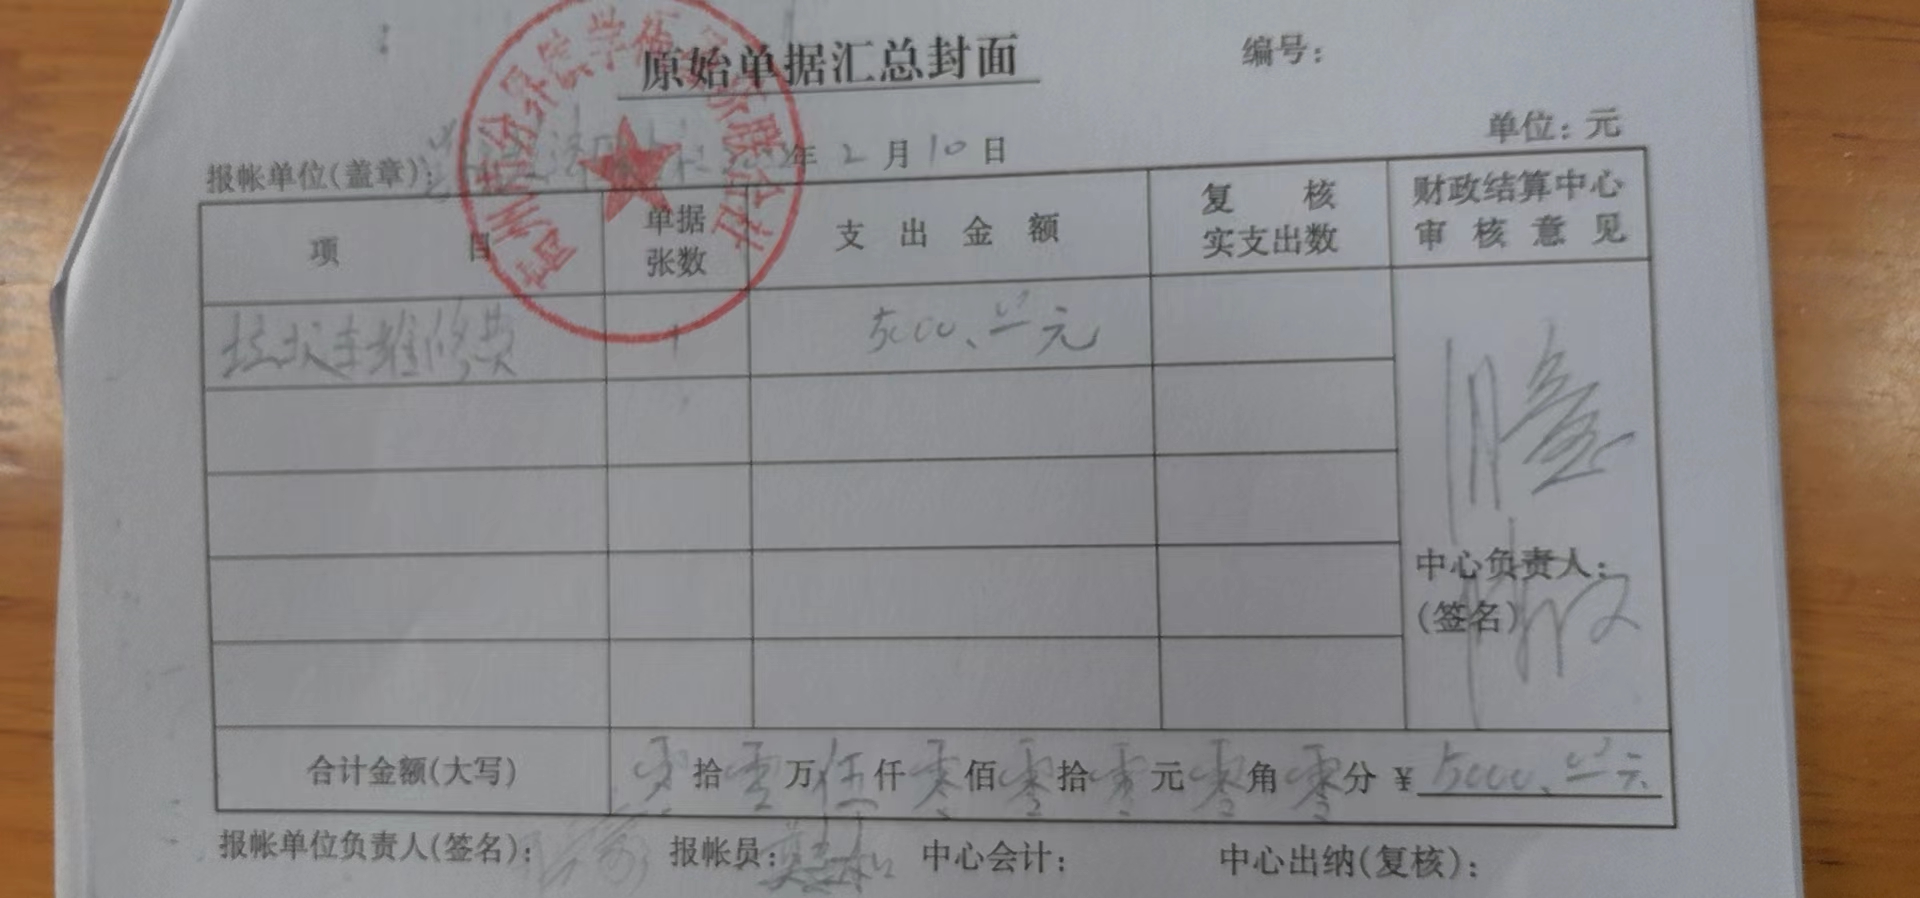 原始单据汇总封面
编号：
单位：元
报帐单位(盖章)： 年 2 月 10 日
项 目 单据张数 支出金额 复核实支出数 财政结算中心审核意见
垃圾车维修费 1 5000.00元
中心负责人：
(签名)
合计金额(大写) 零拾零万伍仟零佰零拾零元零角零分 ¥5000.00元
报帐单位负责人(签名)： 报帐员： 中心会计： 中心出纳(复核)：